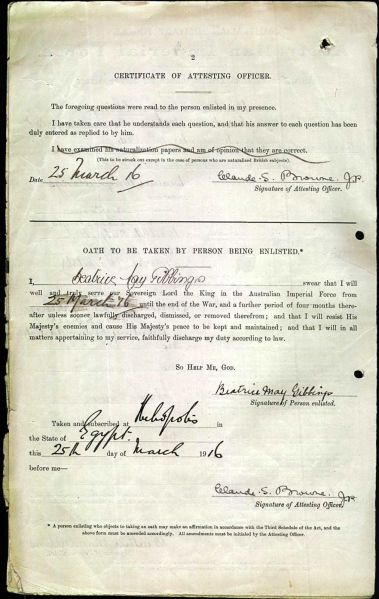 2
CERTIFICATE OF ATTESTING OFFICER.
The foregoing questions were read to the person enlisted in my presence.
I have taken care that he understands each question, and that his answer to each question has been
duly entered as replied to by him.
I have examined his naturalization papers and am of opinion that they are correct.
(This to be struck out except in the case of persons who are naturalized British subjects).
Date 25 March 16
Claude S. Browne. J.P.
Signature of Attesting Officer.
OATH TO BE TAKEN BY PERSON BEING ENLISTED.*
I, Beatrice May Gibbings swear that I will
well and truly serve our Sovereign Lord the King in the Australian Imperial Force from
25 March '16 until the end of the War, and a further period of four months there-
after unless sooner lawfully discharged, dismissed, or removed therefrom; and that I will resist His
Majesty's enemies and cause His Majesty's peace to be kept and maintained; and that I will in all
matters appertaining to my service, faithfully discharge my duty according to law.
So Help Me, God.
Beatrice May Gibbings
Signature of Person enlisted.
Taken and subscribed at Heliopolis in
the State of Egypt.
this 25th day of March 1916
before me—
Claude S. Browne. J.P.
Signature of Attesting Officer.
* A person enlisting who objects to taking an oath may make an affirmation in accordance with the Third Schedule of the Act, and the
above form must be amended accordingly. All amendments must be initialed by the Attesting Officer.